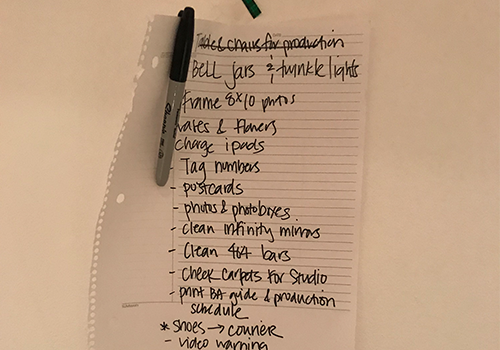 Table & chairs for production
Bell jars & twinkle lights
Frame 8x10 photos
vases & flowers
charge ipads
- Tag numbers
- postcards
- photos & photoboxes
- clean infinity mirrors
- Clean 4x4 bars
- Check carpets for Studio
- print BA guide & production
schedule
* Shoes → courier
- video
Sharpie